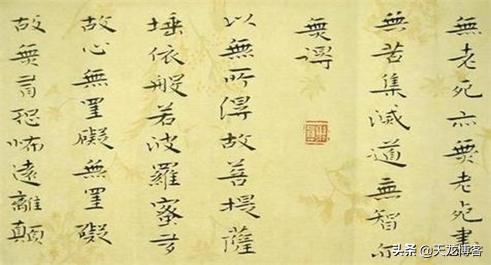 無老死亦無老死盡
無苦集滅道無智亦
無得
以無所得故菩提薩
埵依般若波羅蜜多
故心無罣礙無罣礙
故無有恐怖遠離顛
头条 @天龙博客